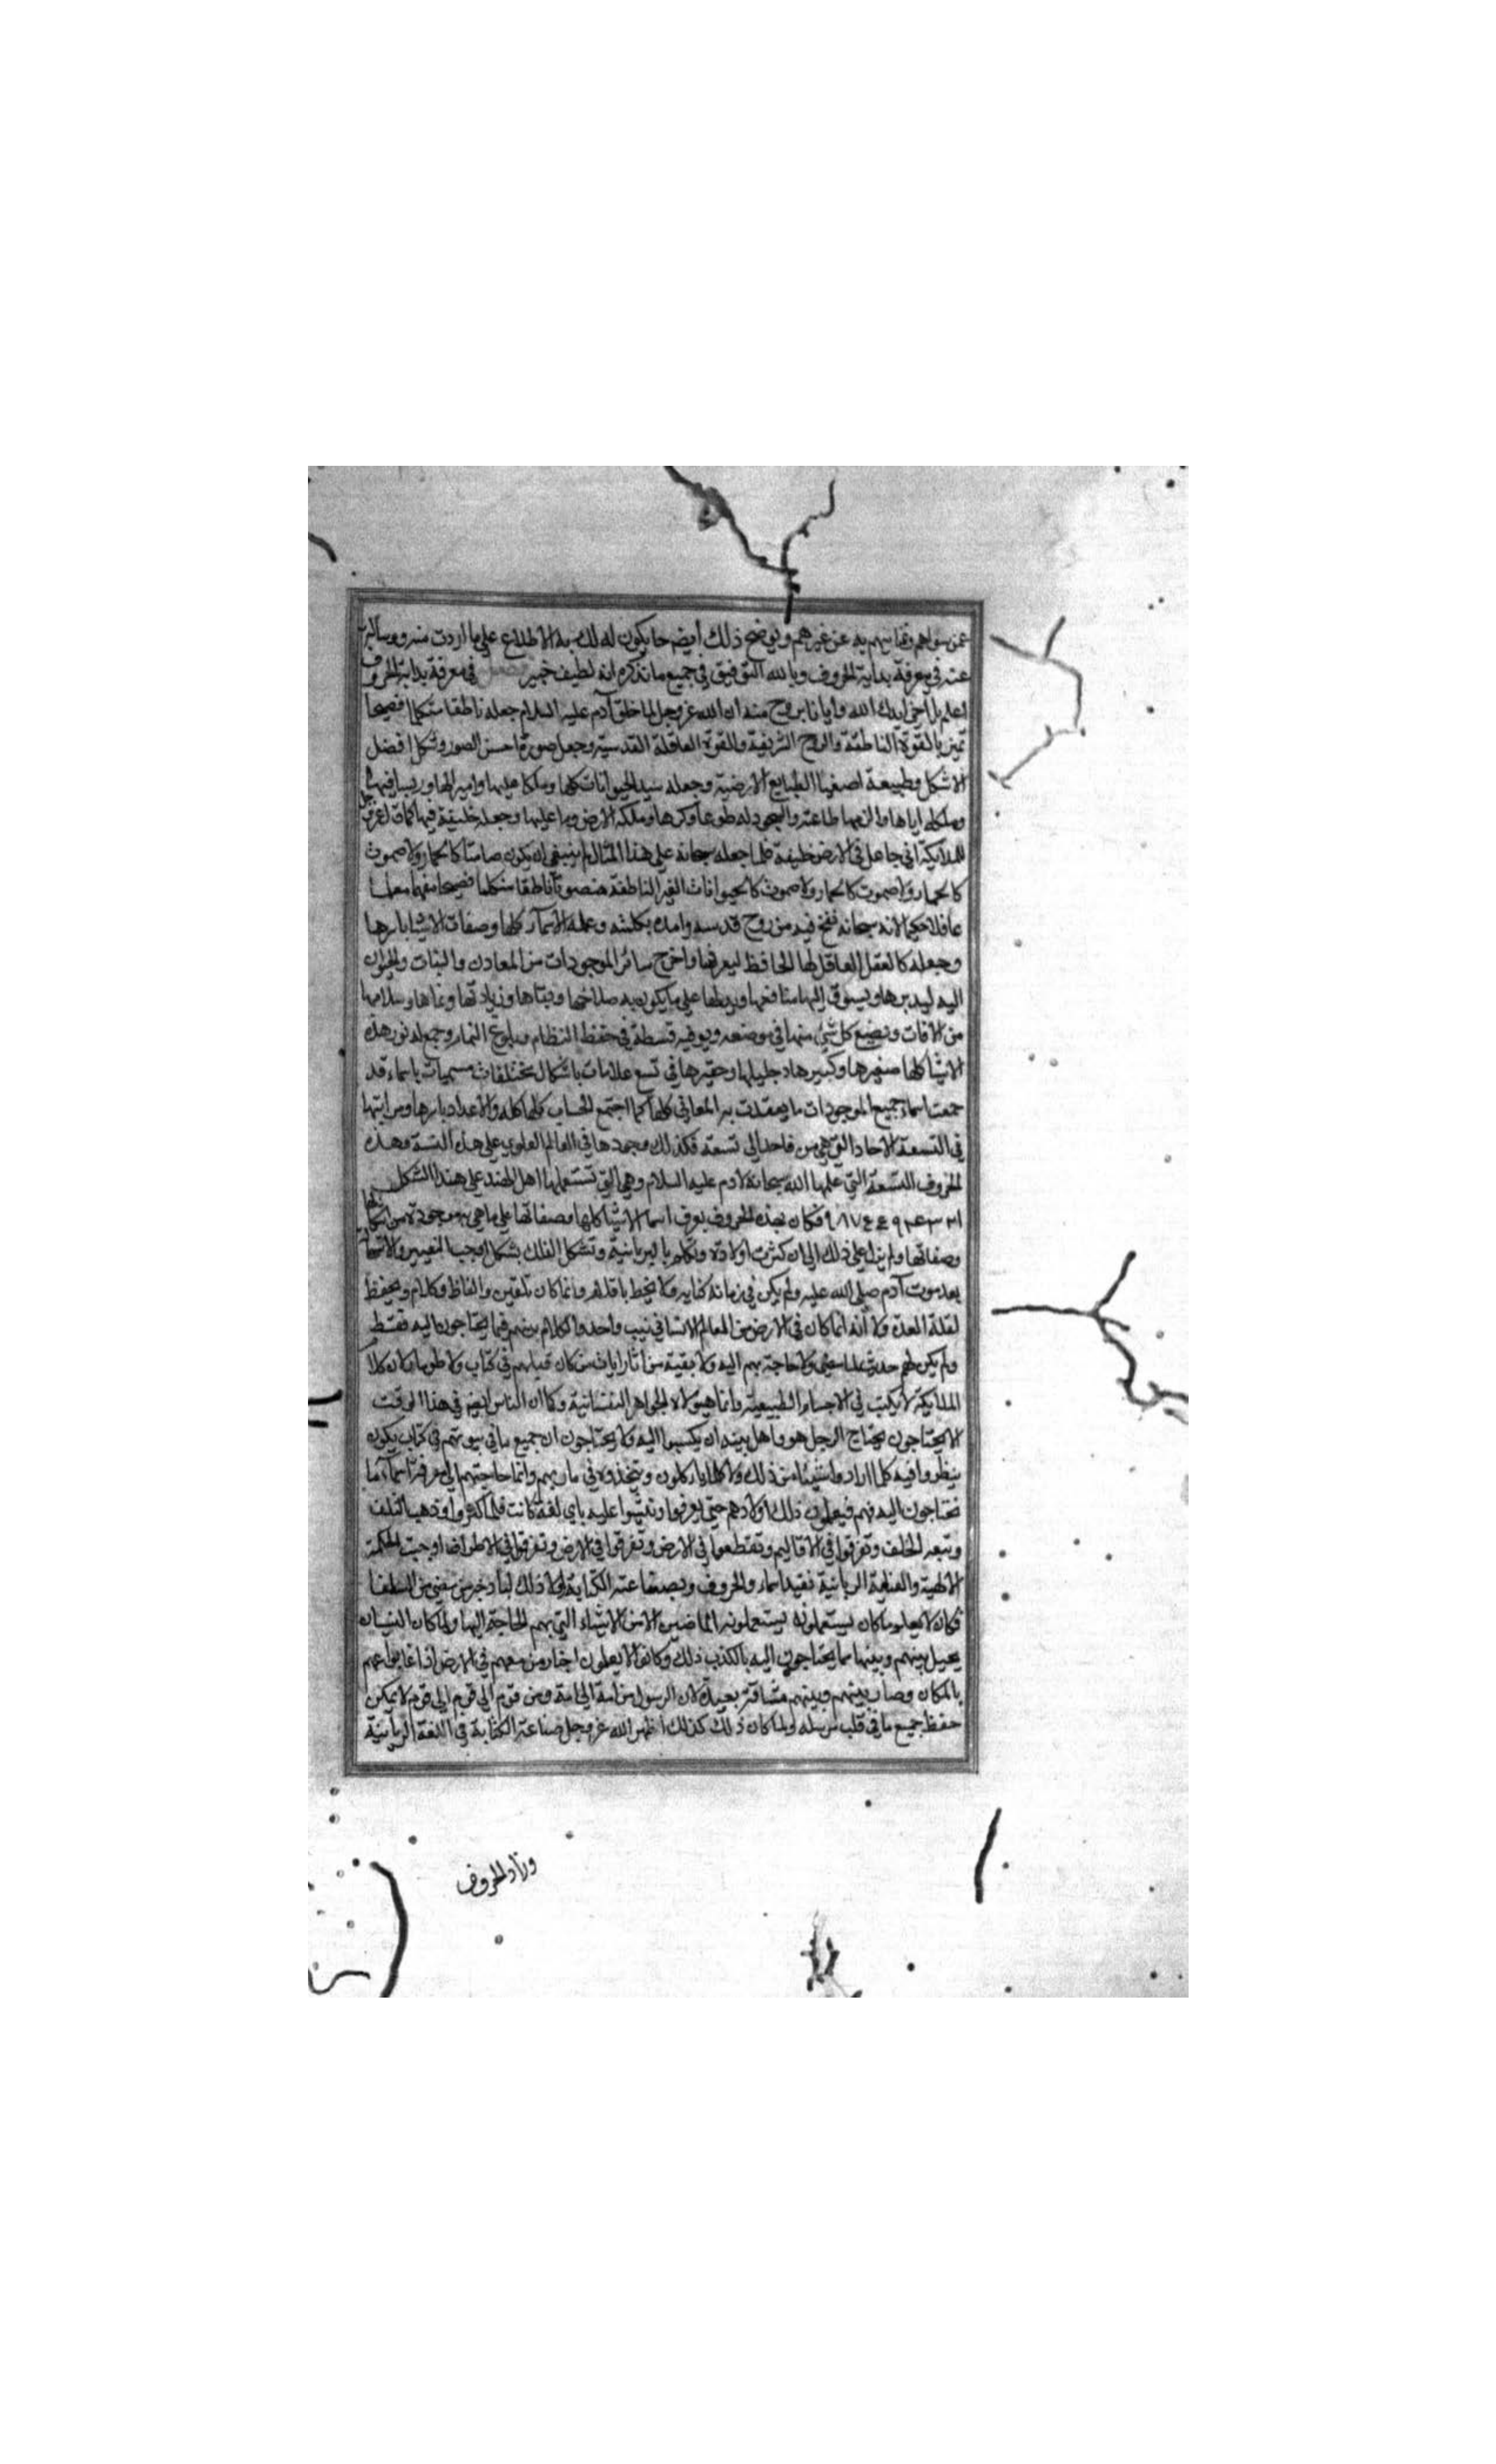 عمن سواهم وتمايزهم به عن غيرهم ويوضح ذلك ايضا ما يكون له لك به الاطلاع على ما اردت منه وسالت
عنه في معرفة بداية الحروف وبالله التوفيق في جميع ما نذكره انه لطيف خبير فصل في معرفة بداية الحروف
اعلم يا اخي ايدك الله وايانا بروح منه ان الله عز وجل لما خلق آدم عليه السلام جعله ناطقا متكلما فصيحا
تميز بالقوة الناطقة والروح الشريفة والقوة العاقلة القدسية وجعل صورته احسن الصور وشكله افضل
الاشكال وطبيعة اصفها الطبايع الارضية وجعله سيد الحيوانات كلها وملكا عليها واميرا لها ورييسا فيها
وملكه اياها والزمها طاعته والسجود له طوعا وكرها وملكه الارض وما عليها وجعله خليفة فيها كما قال عز وجل
للملايكة اني جاعل في الارض خليفة فلما جعله سبحانه على هذا المثال لم ينبغي ان يكون صامتا كالجماد ولا صموت
كالجماد ولا صموت كالجماد ولا صموت كالحيوانات الغير الناطقة فنصوره ناطقا متكلما فصيحا مفهما معلما
عاقلا حكيما لانه سبحانه نفخ فيه من روح قدسه وامده بكلمته وعلمه الاسماء كلها وصفات الاشيا باسرها
وجعله كالعقل العاقل لها الحافظ ليعرفها واخرج سائر الموجودات من المعادن والنبات والحيوان
اليه ليدبرها ويسوق اليها منافعها ويدلها على ما يكون به صلاحها وبقاها وزيادتها ونماها وسلامها
من الافات ويضع كل شيء منها في موضعه ويوفيه قسطه في حفظ النظام وبلوغ التمام وجمع له نور هذه
الاشيا كلها صغيرها وكبيرها وجليلها وحقيرها في تسع علامات باشكال مختلفات مسميات باسماء قد
جمعت اسماء جميع الموجودات ما يعقدت به المعاني كلها كما اجتمع الحساب كلها كله والاعداد باسرها ومراتبها
في التسعة الاحاد التي هي من واحد الى تسعة فكذلك وجودها في العالم العلوي على هذه النسبة وهذه
الحروف التسعة التي علمها الله سبحانه لادم عليه السلام وهي التي تستعملها اهل الهند على هذا الشكل
فكان بهذه الحروف يعرف اسما الاشيا كلها وصفاتها على ما هي به موجودة من اشكالها
وصفاتها ولم يزل على ذلك الى ان كثرت اولاده وتكلم بالسريانية وتشكل الفلك بشكل اوجب التغيير والانتقال
بعد موت آدم صلى الله عليه ولم يكن في زمانه كتابه ولا يخط باقلام وانما كان تلقين والفاظ وكلام ويحفظ
لقلة العدة ولا انه انما كان في الارض من العالم الانساني نيب واحد والكلام بينهم فيما يحتاجون اليه فقط
ولم يكن لهم حديث بما مضى ولا حاجة بهم اليه ولا بقية من آثار ايات من كان قبلهم في كتاب ولا طومار كان كلام
الملايكة لا يكتب في الاجسام الطبيعية وانما هيولاه الجواهر النفسانية وكما ان الناس ايضا في هذا الوقت
لا يحتاجون يحتاج الرجل هو واهل بيته ان يكتبوا اليه ولا يحتاجون ان جميع ما في بيوتهم في كتاب يكون
ينظروا فيه كلما ارادوا شيئا من ذلك ولا كلما ياكلون ويتخذوه في ماربهم وانما حاجتهم الى معرفة اسماء ما
يحتاجون اليه فهم فيعلمون ذلك اولادهم حتى يعرفوا وينشوا عليه باي لغة كانت فلما كثروا وذهب السلف
وتبعه الخلف وتفرقوا في الاقاليم وتقطعوا في الارض وتفرقوا في الارض وتفرقوا في الاطراف اوجبت الحكمة
الالهية والعناية الربانية تقييد اسماء والحروف وبصناعة الكتابة ولولا ذلك لما دخر من مضى من السلفا
فكان لا يعلم ما كان يستعملونه يستعملونه الماضين الا من الاشياء التي بهم الحاجة اليها ولما كان النسيان
يحيل بينهم وبينها مما يحتاجون اليه بالكذب ذلك وكانوا لا يعلمون اخبار من معهم في الارض اذا غابوا عنهم
بالمكان وصار بينهم وبينهم مسافة بعيدة لان الرسول من امة الى امة ومن قوم الى قوم الى قوم لا يمكن
حفظ جميع ما في قلب مرسله ولما كان ذلك كذلك اظهر الله عز وجل صناعة الكتابة في اللغة السريانية
وزاد الحروف